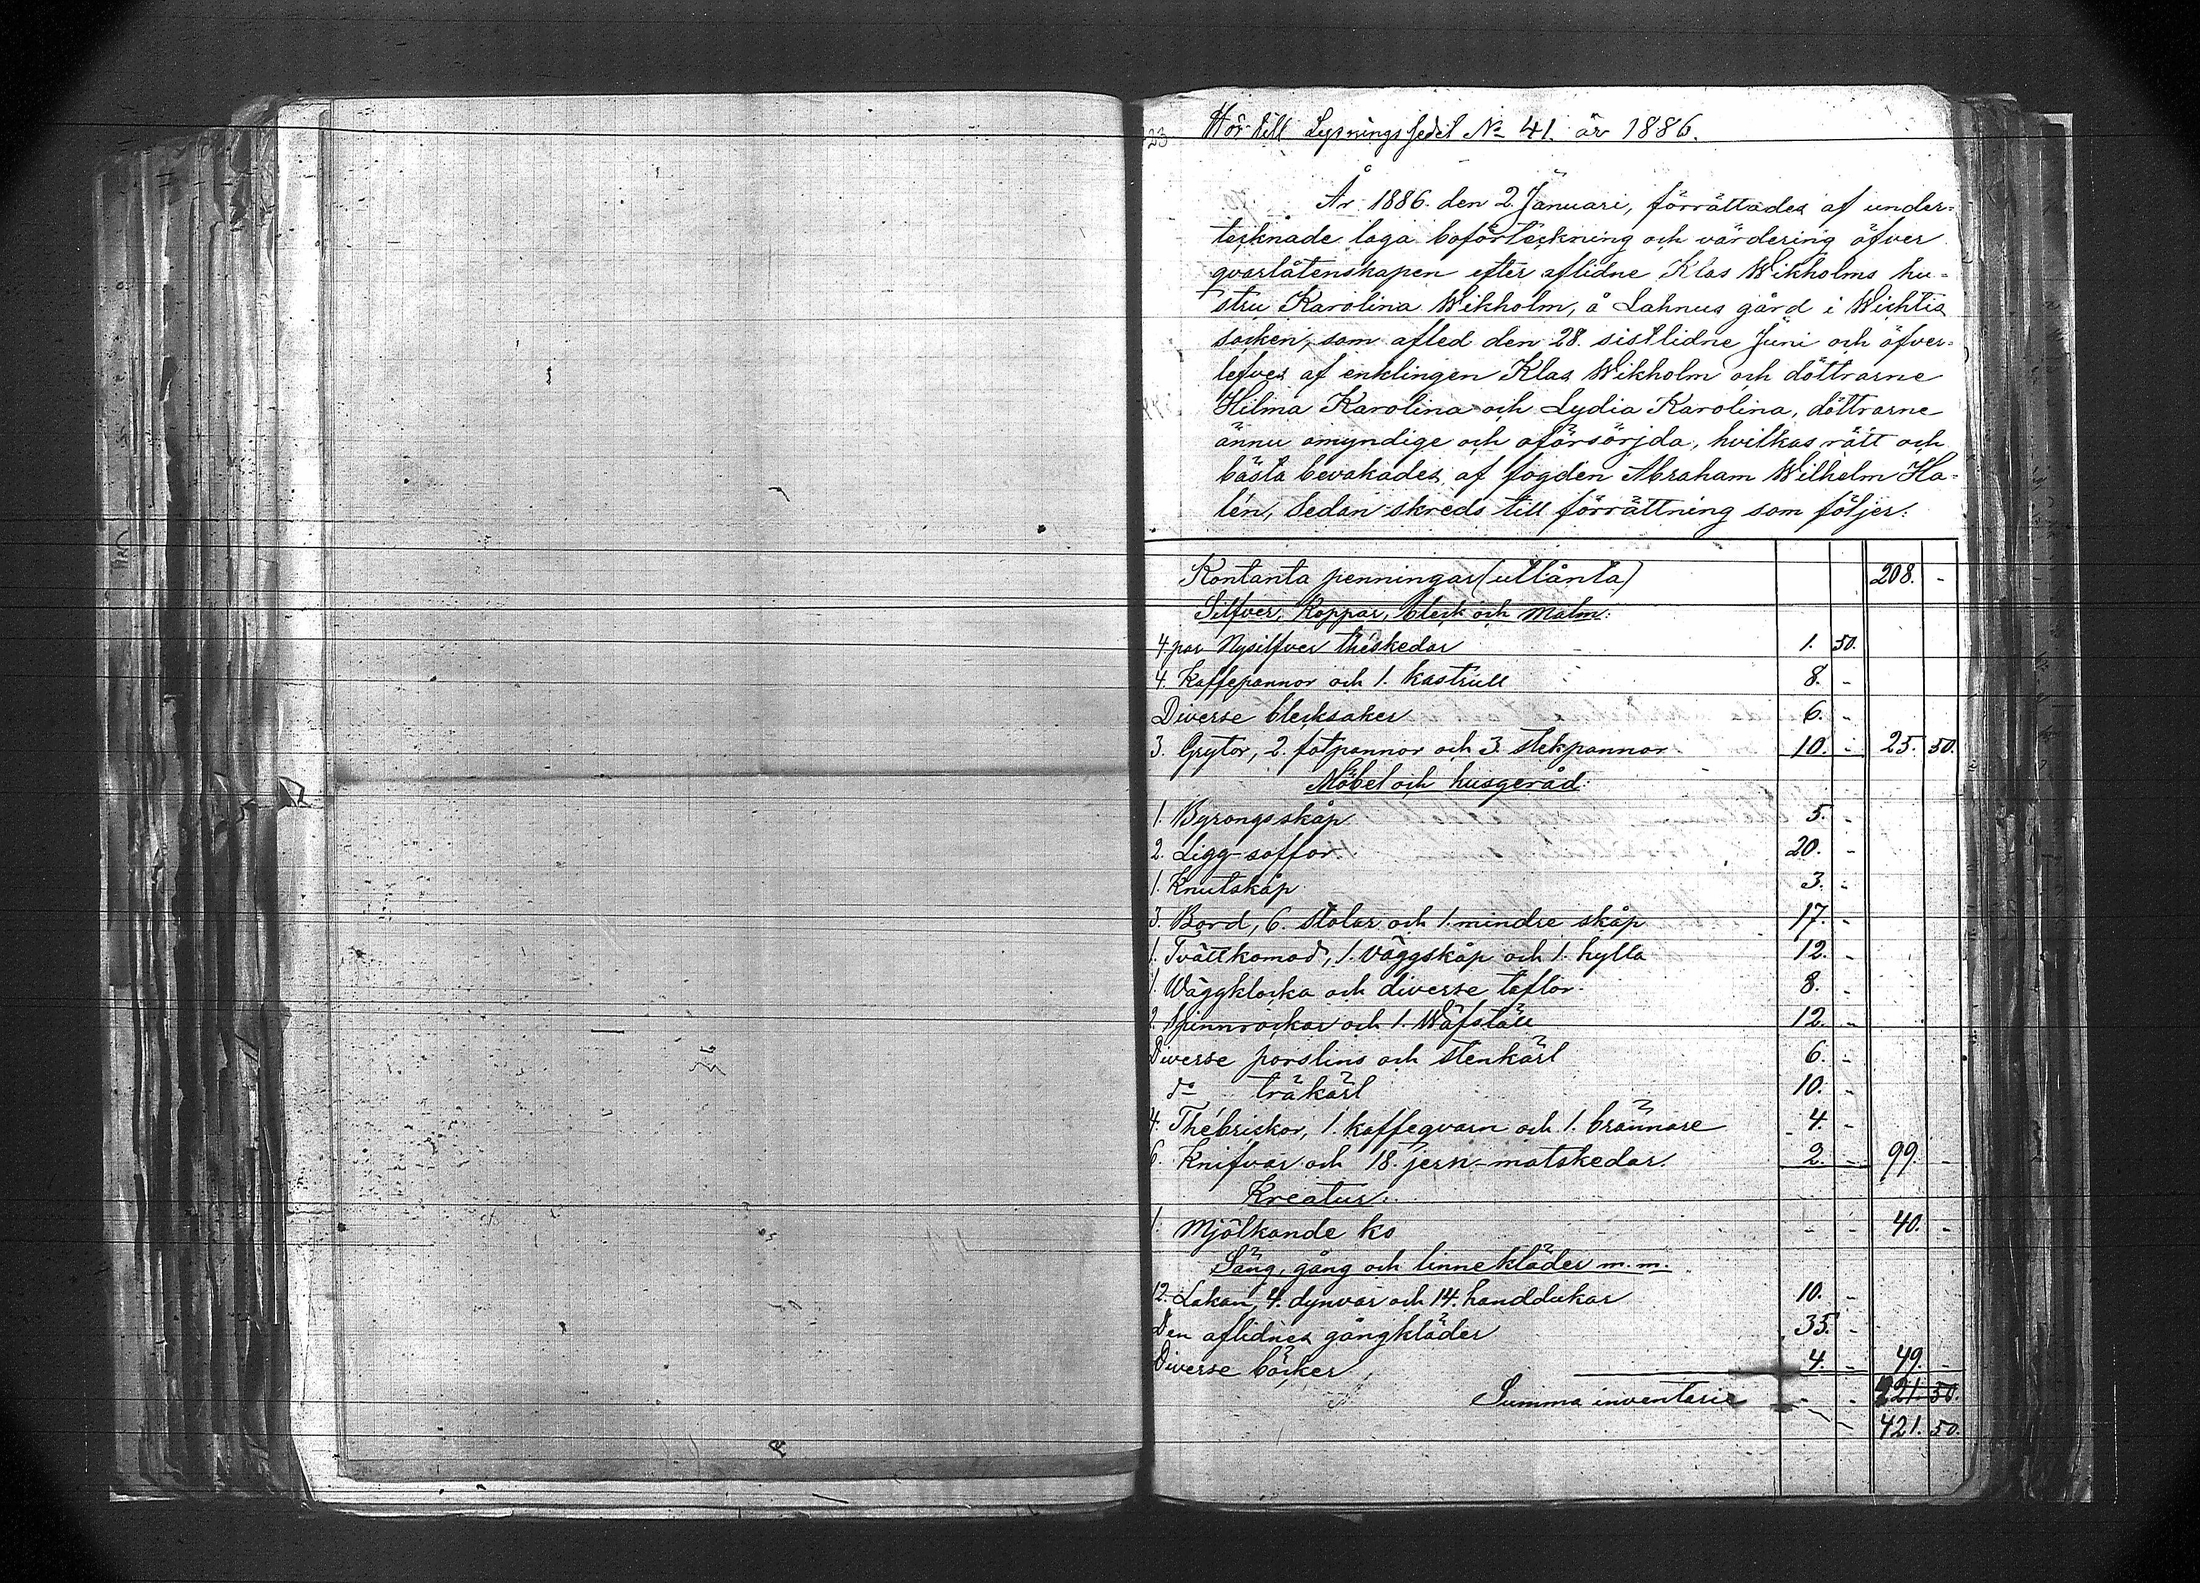 23 Hör till Lysningssedel No 41. år 1886.
År 1886. den 2. Januari, förrättades af under-
tecknade laga boförteckning och värdering öfver
qvarlåtenskapen efter aflidne Klas Wikholms hu-
stru Karolina Wikholm, å Lahnus gård i Wichtis
socken, som afled den 28. sistlidne Juni och öfver-
lefves af enklingen Klas Wikholm och döttrarne
Hilma Karolina och Lydia Karolina, döttrarne
ännu omyndige och oförsörjda, hvilkas rätt och
bästa bevakades af fogden Abraham Wilhelm Ha-
lén, Sedan skreds till förrättning som följer:
Kontanta penningar (utlånta) 208. -
Silfver, Koppar, bleck och Malm:
4. par Nysilfver théskedar 1. 50.
4. Kaffepannor och 1. kastrull 8. -
Diverse blecksaker 6. -
3. Grytor, 2. fotpannor och 3. stekpannor 10. - 25. 50.
Möbel och husgeråd:
1. Byrongsskåp 5. -
2. Ligg-soffor 20. -
1. Knutskåp 3. -
3. Bord, 6. stolar och 1. mindre skåp 17. -
1. Tvättkomod, 1. väggskåp och 1. hylla 12. -
1. Wäggklocka och diverse taflor 8. -
2. Spinnrockar och 1. Wäfställ 12. -
Diverse porslins och stenkärl 6. -
do träkärl 10. -
4. Thébrickor, 1. kaffeqvarn och 1. brännare 4. -
6. Knifvar och 18. jern-matskedar. 2. - 99. -
Kreatur:
1. Mjölkande ko - - 40. -
Säng, gång och linnekläder m. m.
12. Lakan, 4. dynvar och 14. handdukar 10. -
Den aflidnes gångkläder 35. -
Diverse böcker 4. - 49. -
Summa inventarie - - 221. 50.
421. 50.